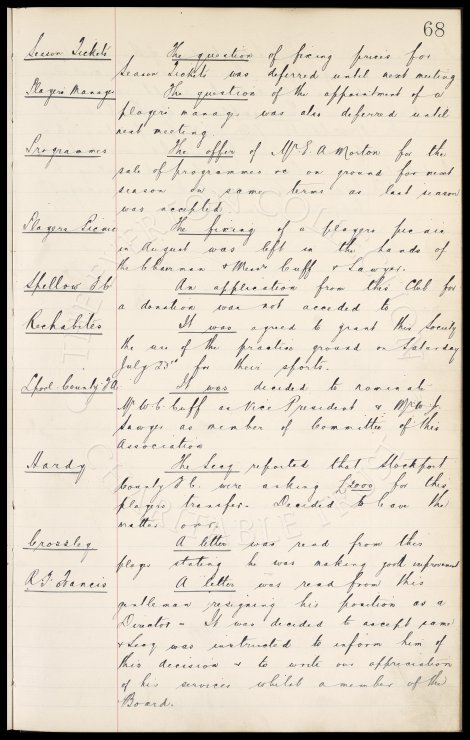 68
Season Tickets The question of fixing prices for
Season Tickets was deferred until next meeting
Players Manager The question of the appointment of a
players manager was also deferred until
next meeting.
Programmes The offer of Mr E. A Morton for the
sale of programmes &c on ground for next
season on same terms as last season
was accepted
Players Picnic The fixing of a players pic nic
in August was left in the hands of
the Chairman & Messrs Cuff & Sawyer.
Spellow F.C. An application from this Club for
a donation was not acceded to
Rechabites It was agreed to grant this Society
the use of the practice ground on Saturday
July 23rd for their sports.
Lpool County F.A. It was decided to nominate
Mr W. C. Cuff as Vice President & Mr W. J.
Sawyer as member of Committee of this
Association
Hardy The Secy reported that Stockport
County F.C. were asking £2000 for this
players transfer. Decided to leave the
matter over.
Crossley A letter was read from this
player stating he was making good improvement
R. F. Francis A letter was read from this
gentleman resigning his position as a
Director - It was decided to accept same
& Secy was instructed to inform him of
this decision & to write our appreciation
of his services whilst a member of the
Board.